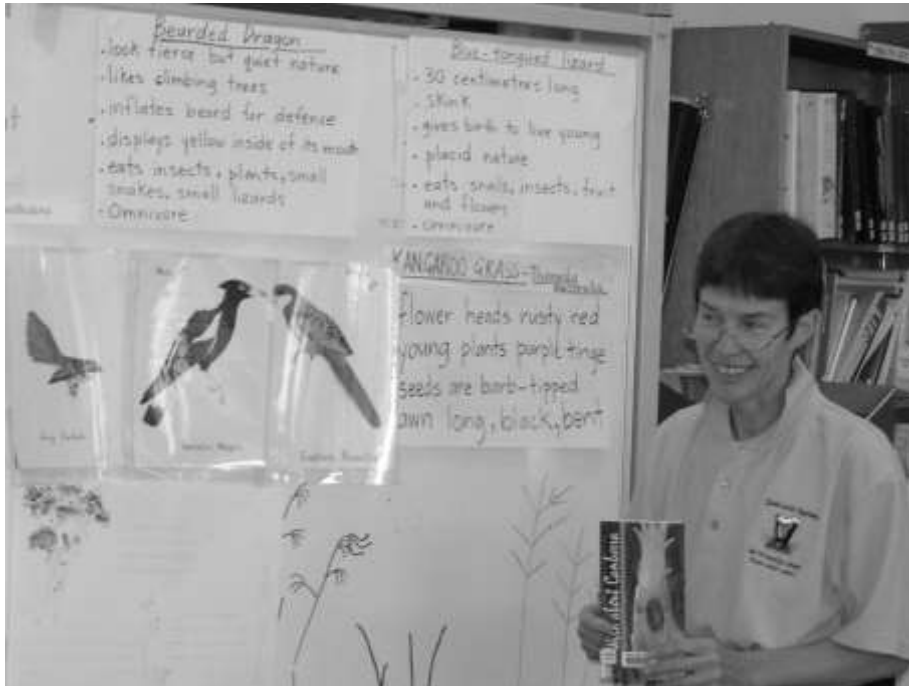 Bearded Dragon
• look fierce but quiet nature
• likes climbing trees
• inflates beard for defence
• displays yellow inside of its mouth
• eats insects, plants, small
snakes, small lizards
• Omnivore
Blue-tongued lizard
• 30 centimetres long
• skink
• gives birth to live young
• placid nature
• eats snails, insects, fruit
and flowers
• omnivore
KANGAROO GRASS - Themeda
Australis
flower heads rusty red
young plants purple tinge
seeds are barb-tipped
awn long, black, bent
Eastern Rosella